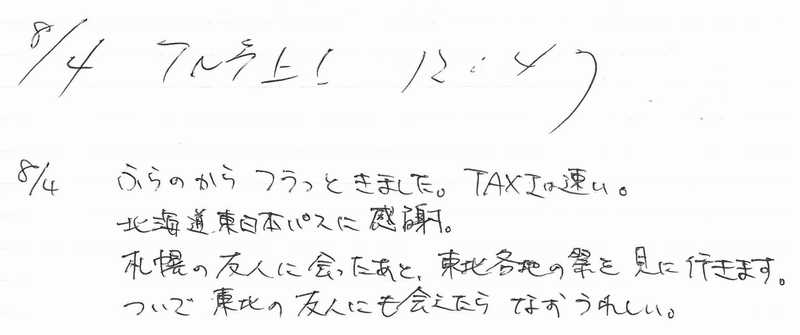 8/4 フル乗上! 12:47
8/4 ふらのから フラっときました。TAXIは速い。
北海道東日本パスに感謝。
札幌の友人に会ったあと、東北各地の祭を見に行きます。
ついで東北の友人にも会えたら なおうれしい。